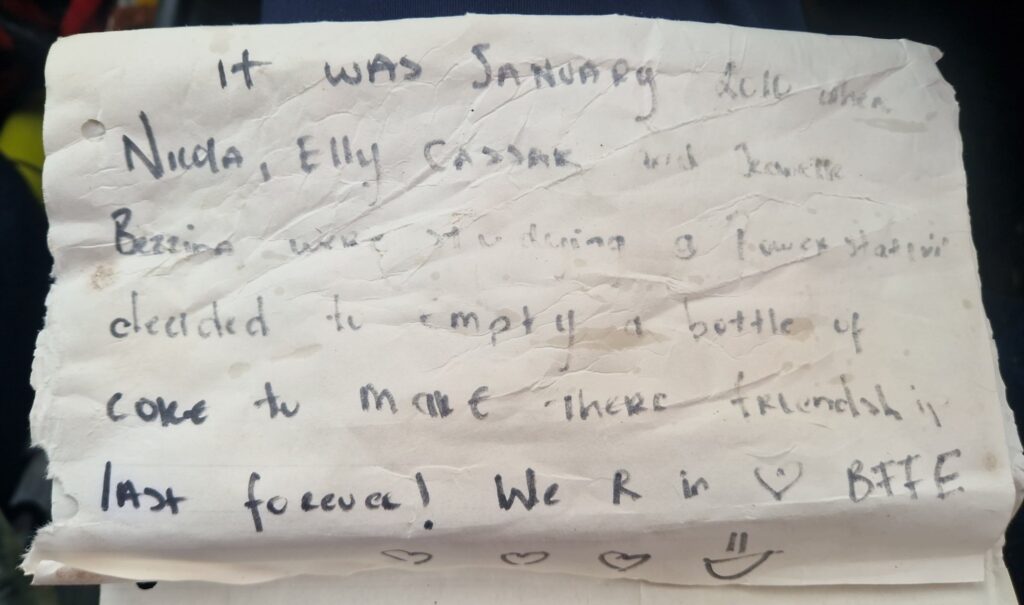 It was January when
Nicola, Elly Cassar and Jeanelle
Bezzina were studying a
decided to empty a bottle of
coke to make there friendship
last forever! We R in ♡ BFFE
♡ ♡ ♡